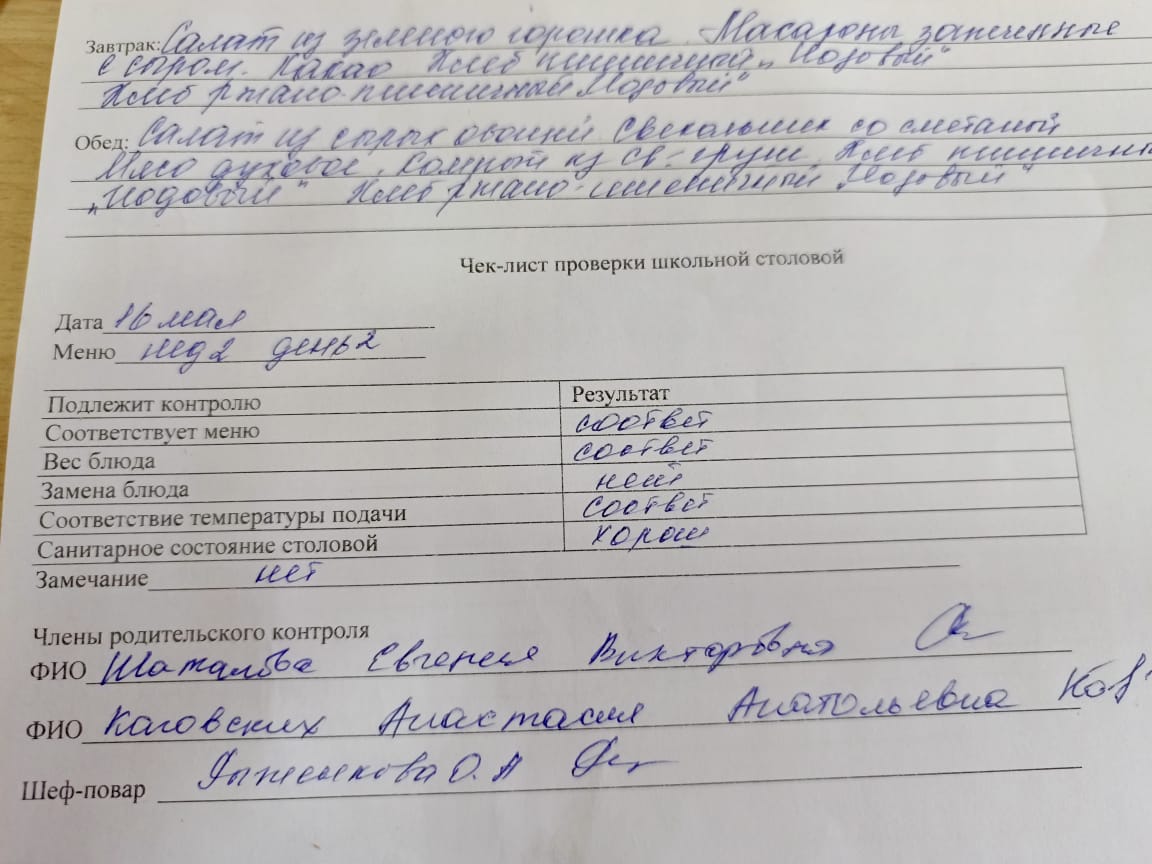 Завтрак: Салат из зеленого горошка. Макароны запеченные
с сыром. Какао Хлеб пшеничный „Йодовый"
Хлеб ржано-пшеничный „Йодовый"
Обед: Салат из сырых овощей Свекольник со сметаной
Мясо духовое. Компот из св-груш. Хлеб пшеничн
„Йодовый" Хлеб ржано-пшеничный „Йодовый"
Чек-лист проверки школьной столовой
Дата 16 мая
Меню нед 2 день 2
Подлежит контролю Результат
Соответствует меню соответ
Вес блюда соответ
Замена блюда нет
Соответствие температуры подачи соответ
Санитарное состояние столовой хорош
Замечание нет
Члены родительского контроля
ФИО Шаталова Евгения Викторовна
ФИО Каговских Анастасия Анатольевна Каг
Шеф-повар О. А